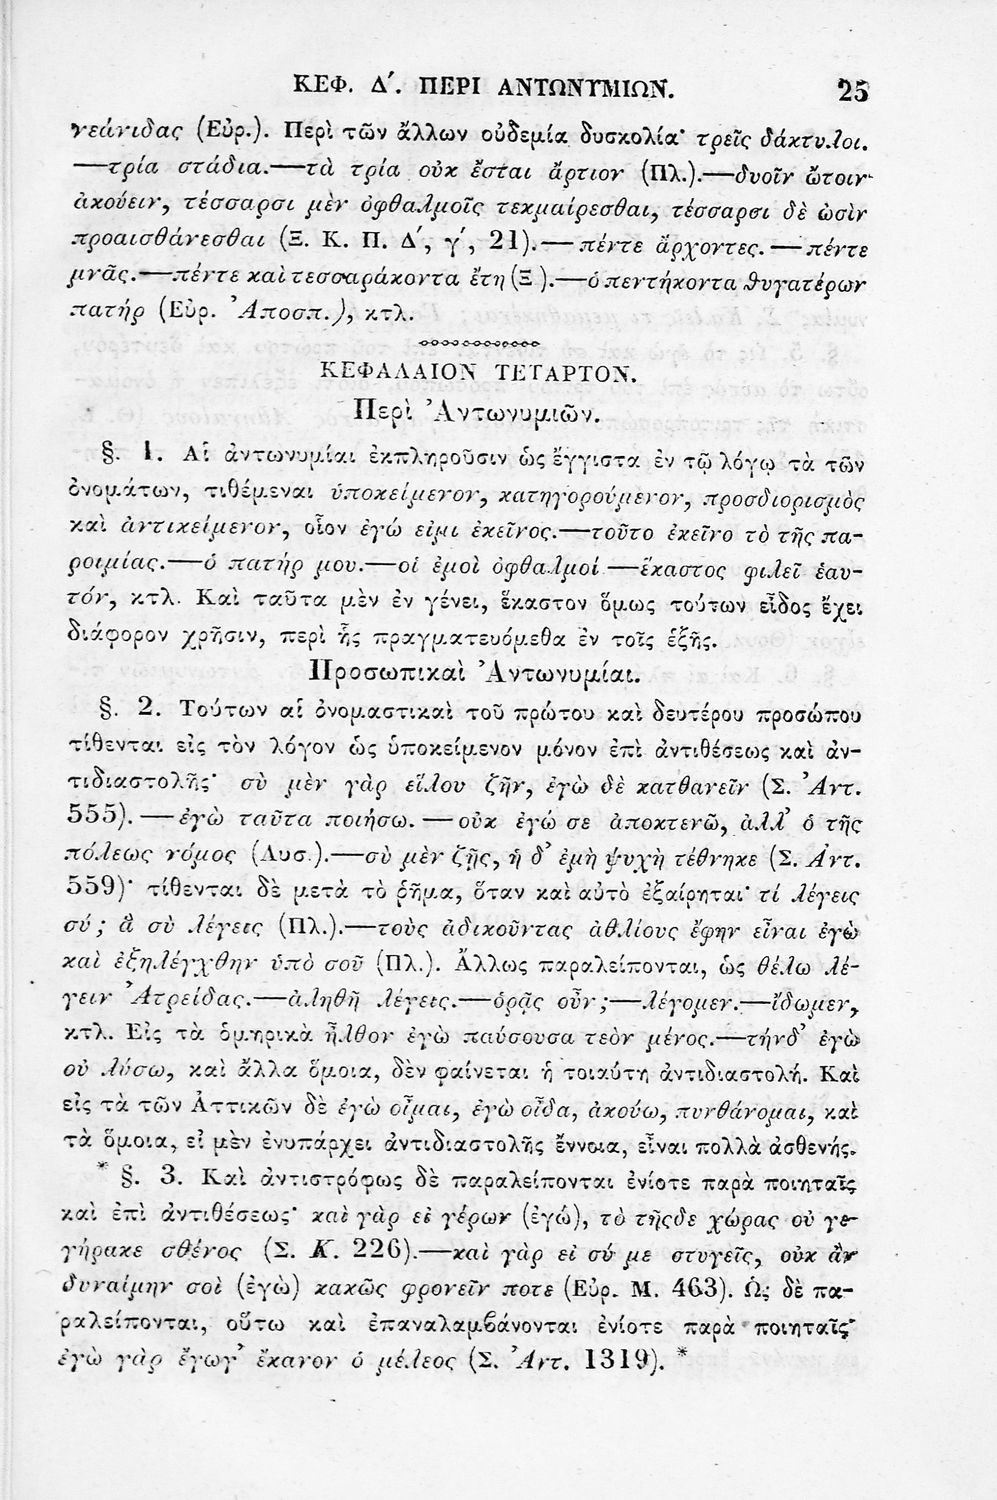 ΚΕΦ. Δ΄. ΠΕΡΙ ΑΝΤΩΝΥΜΙΩΝ. 25
νεάνιδας (Εὐρ.). Περὶ τῶν ἄλλων οὐδεμία δυσκολία· τρεῖς δάκτυλοι.
—τρία στάδια.—τὰ τρία οὐκ ἔσται ἄρτιον (Πλ.).—δυοῖν ὤτοιν
ἀκούειν, τέσσαρσι μὲν ὀφθαλμοῖς τεκμαίρεσθαι, τέσσαρσι δὲ ὠσὶν
προαισθάνεσθαι (Ξ. Κ. Π. Δ΄, γ΄, 21).—πέντε ἄρχοντες.—πέντε
μνᾶς.—πέντε καὶ τεσσαράκοντα ἔτη (Ξ ).—ὁ πεντήκοντα θυγατέρων
πατήρ (Εὐρ. Ἀποσπ.), κτλ.
ΚΕΦΑΛΑΙΟΝ ΤΕΤΑΡΤΟΝ.
Περὶ Ἀντωνυμιῶν.
§. 1. Αἱ ἀντωνυμίαι ἐκπληροῦσιν ὡς ἔγγιστα ἐν τῷ λόγῳ τὰ τῶν
ὀνομάτων, τιθέμεναι ὑποκείμενον, κατηγορούμενον, προσδιορισμὸς
καὶ ἀντικείμενον, οἷον ἐγώ εἰμι ἐκεῖνος.—τοῦτο ἐκεῖνο τὸ τῆς πα-
ροιμίας.—ὁ πατήρ μου.—οἱ ἐμοὶ ὀφθαλμοί.—ἕκαστος φιλεῖ ἑαυ-
τόν, κτλ. Καὶ ταῦτα μὲν ἐν γένει, ἕκαστον ὅμως τούτων εἶδος ἔχει
διάφορον χρῆσιν, περὶ ἧς πραγματευόμεθα ἐν τοῖς ἑξῆς.
Προσωπικαὶ Ἀντωνυμίαι.
§. 2. Τούτων αἱ ὀνομαστικαὶ τοῦ πρώτου καὶ δευτέρου προσώπου
τίθενται εἰς τὸν λόγον ὡς ὑποκείμενον μόνον ἐπὶ ἀντιθέσεως καὶ ἀν-
τιδιαστολῆς· σὺ μὲν γὰρ εἵλου ζῆν, ἐγὼ δὲ κατθανεῖν (Σ. Ἀντ.
555).—ἐγὼ ταῦτα ποιήσω.—οὐκ ἐγώ σε ἀποκτενῶ, ἀλλ' ὁ τῆς
πόλεως νόμος (Λυσ.).—σὺ μὲν ζῇς, ἡ δ' ἐμὴ ψυχὴ τέθνηκε (Σ. Ἀντ.
559)· τίθενται δὲ μετὰ τὸ ῥῆμα, ὅταν καὶ αὐτὸ ἐξαίρηται· τί λέγεις
σύ; ἃ σὺ λέγεις (Πλ.).—τοὺς ἀδικοῦντας ἀθλίους ἔφην εἶναι ἐγὼ
καὶ ἐξηλέγχθην ὑπὸ σοῦ (Πλ.). Ἄλλως παραλείπονται, ὡς θέλω λέ-
γειν Ἀτρείδας.—ἀληθῆ λέγεις.—ὁρᾷς οὖν;—λέγομεν.—ἴδωμεν,
κτλ. Εἰς τὰ ὁμηρικὰ ἦλθον ἐγὼ παύσουσα τεὸν μένος.—τήνδ' ἐγὼ
οὐ λύσω, καὶ ἄλλα ὅμοια, δὲν φαίνεται ἡ τοιαύτη ἀντιδιαστολή. Καὶ
εἰς τὰ τῶν Ἀττικῶν δὲ ἐγὼ οἶμαι, ἐγὼ οἶδα, ἀκούω, πυνθάνομαι, καὶ
τὰ ὅμοια, εἰ μὲν ἐνυπάρχει ἀντιδιαστολῆς ἔννοια, εἶναι πολλὰ ἀσθενής.
* §. 3. Καὶ ἀντιστρόφως δὲ παραλείπονται ἐνίοτε παρὰ ποιηταῖς
καὶ ἐπὶ ἀντιθέσεως· καὶ γὰρ εἰ γέρων (ἐγώ), τὸ τῆςδε χώρας οὐ γε-
γήρακε σθένος (Σ. Κ. 226).—καὶ γὰρ εἰ σύ με στυγεῖς, οὐκ ἂν
δυναίμην σοὶ (ἐγὼ) κακῶς φρονεῖν ποτε (Εὐρ. Μ. 463). Ὡς δὲ πα-
ραλείπονται, οὕτω καὶ ἐπαναλαμβάνονται ἐνίοτε παρὰ ποιηταῖς·
ἐγὼ γὰρ ἔγωγ' ἔκανον ὁ μέλεος (Σ. Ἀντ. 1319). *